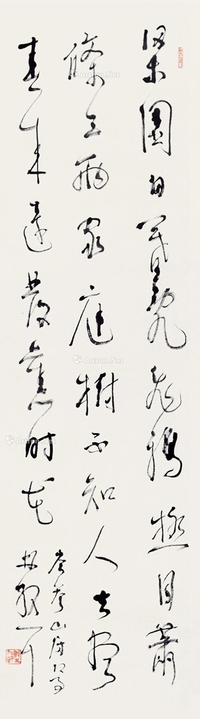 梁園日暮亂飛鴉極目蕭
條三兩家庭樹不知人去盡
春來還發舊時花
岑參山房春事
林散之